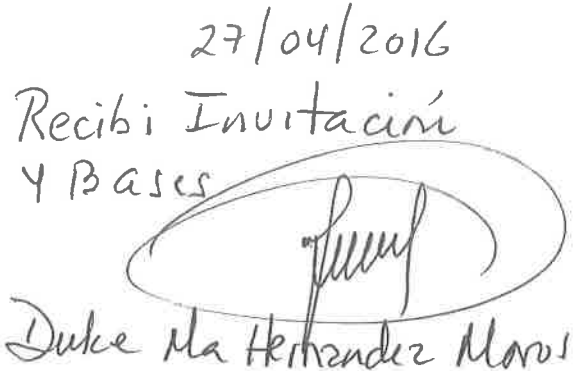 27/04/2016
Recibi Invitación
Y Bases
Dulce Ma Hernandez Moros